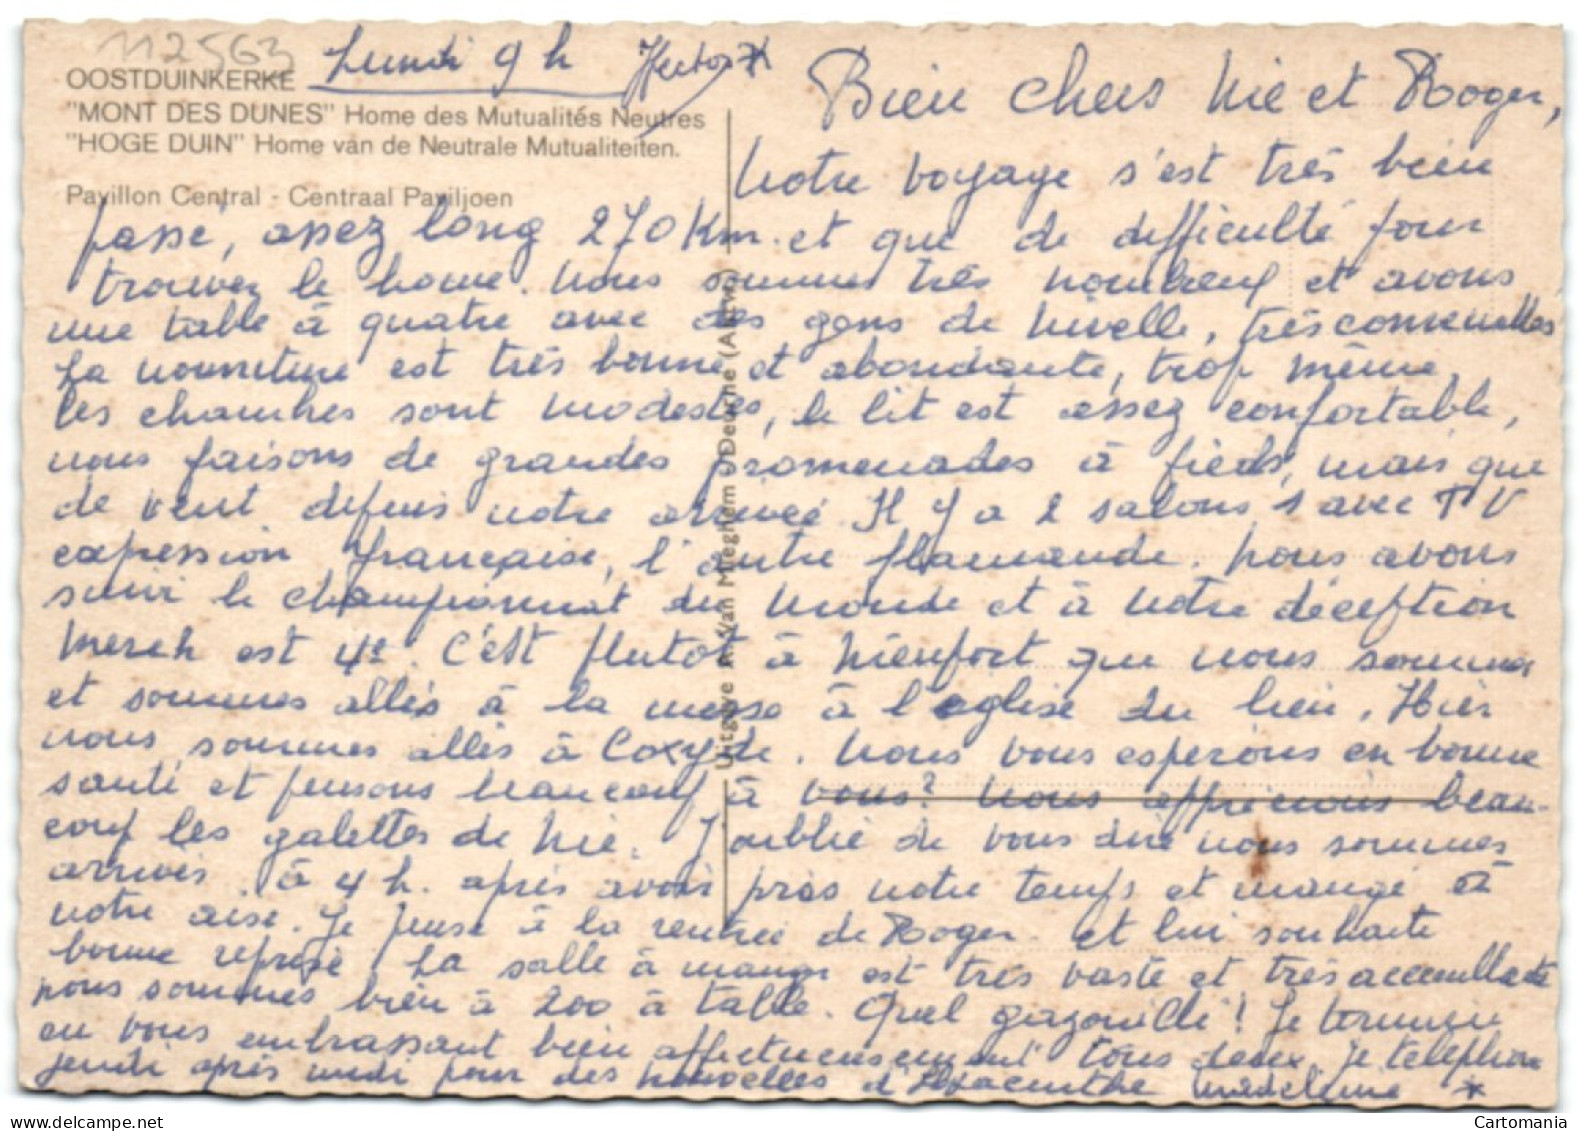 112563
Lundi 9h
OOSTDUINKERKE
"MONT DES DUNES" Home des Mutualités Neutres
"HOGE DUIN" Home van de Neutrale Mutualiteiten.
Pavillon Central - Centraal Paviljoen
Uitgave A. Van Mieghem Deurne (A'pen)
Bien chers Nie et Roger,
Notre voyage s'est très bien
passé, assez long 270 Km. et que de difficulté pour
trouver le home. Nous sommes très nombreux et avons
une table à quatre avec des gens de Nivelle, très
La nourriture est très bonne et abondante, trop même.
Les chambres sont modestes, le lit est assez confortable,
nous faisons de grandes promenades à pieds, mais que
de vent depuis notre arrivée Il y a 2 salons 1 avec TV
expression française, l'autre flamande. Nous avons
suivi le championnat du Monde et à notre déception
Merck est 4e. C'est plutot à Nieuport que nous sommes
et sommes allés à la messe à l'eglise du lieu. Hier
nous sommes allés à Coxyde. Nous vous esperons en bonne
santé et pensons beaucoup à vous? Nous apprécions beau-
coup les galettes de Nie. J'oublié de vous dire nous sommes
arrivés à 4 h. après avoir pris notre temps et mangé à
notre aise. Je pense à la rentrée de Roger et lui souhaite
bonne reprise La salle à manger est très vaste et très
nous sommes bien à 200 à table. Quel gazouillé! Je termine
en vous embrassant bien affectueusement tous deux je telephone
jeudi après midi pour des nouvelles d'Hyacinthe Madeleine *
Cartomania